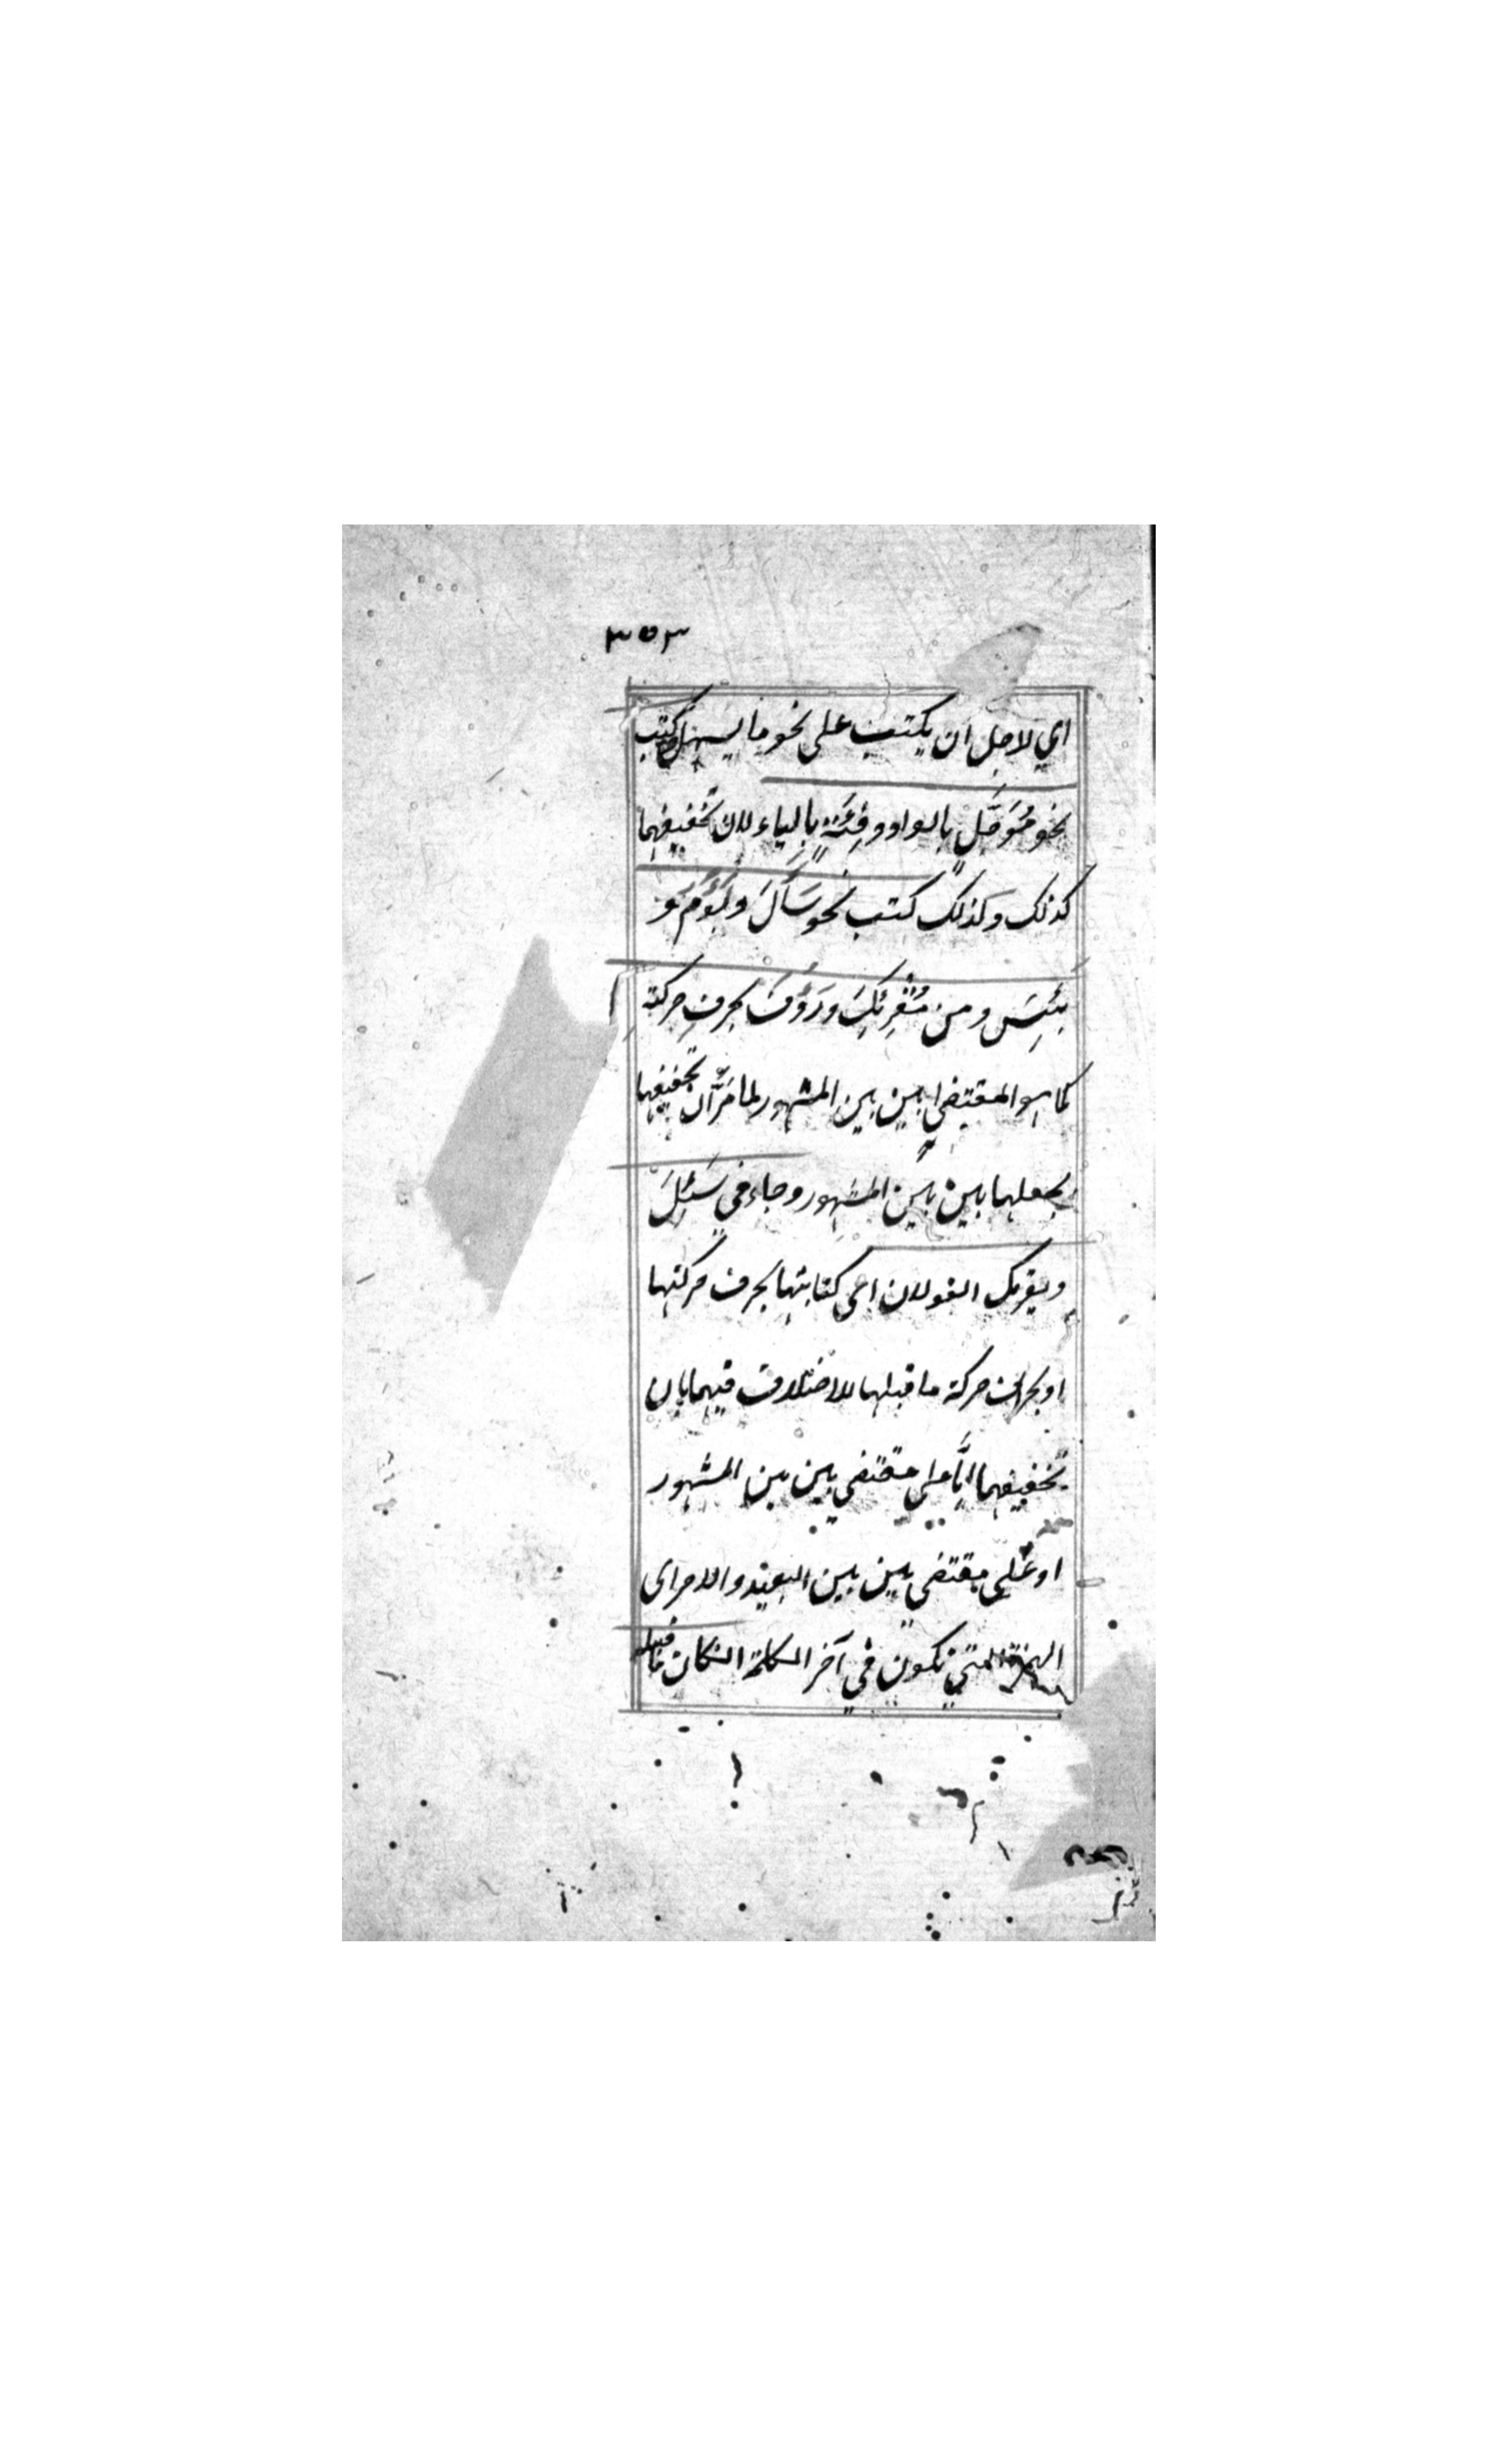 ٣٥٣
اي لاجل ان يكتب على نحو ما يسهل كتب
نحو مُوَجَّلٍ بالواو وفِئَةٍ بالياء لان تخفيفهما
كذلك وكذلك كتب نحو سَأَلَ ولَؤُمَ و
بَئِسَ ومن مُقْرِئِكَ ورَؤُفَ بحرفِ حركته
كما هو المقتضي بين بين المشهور لما مرَّ ان تخفيفها
بجعلها بين بين المشهور وجاء في سُئِلَ
ويقرئك القولان اي كتابتها بحرف حركتها
او بحرف حركة ما قبلها للاختلاف فيهما بان
تخفيفهما امَّا على مقتضي بين بين المشهور
او على مقتضي بين بين البعيد والاخر اي
الهمزة التي تكون في آخر الكلمة ان كان ما قبله